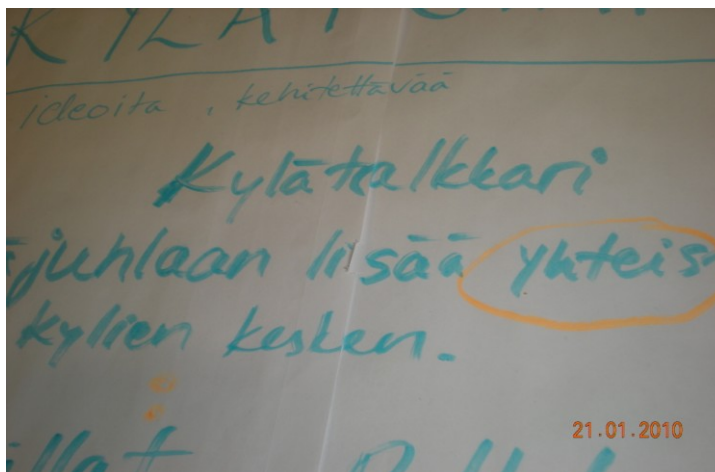 ideoita, kehitettävää
Kylätalkkari
juhlaan lisää yhteis
kylien kesken.
21.01.2010